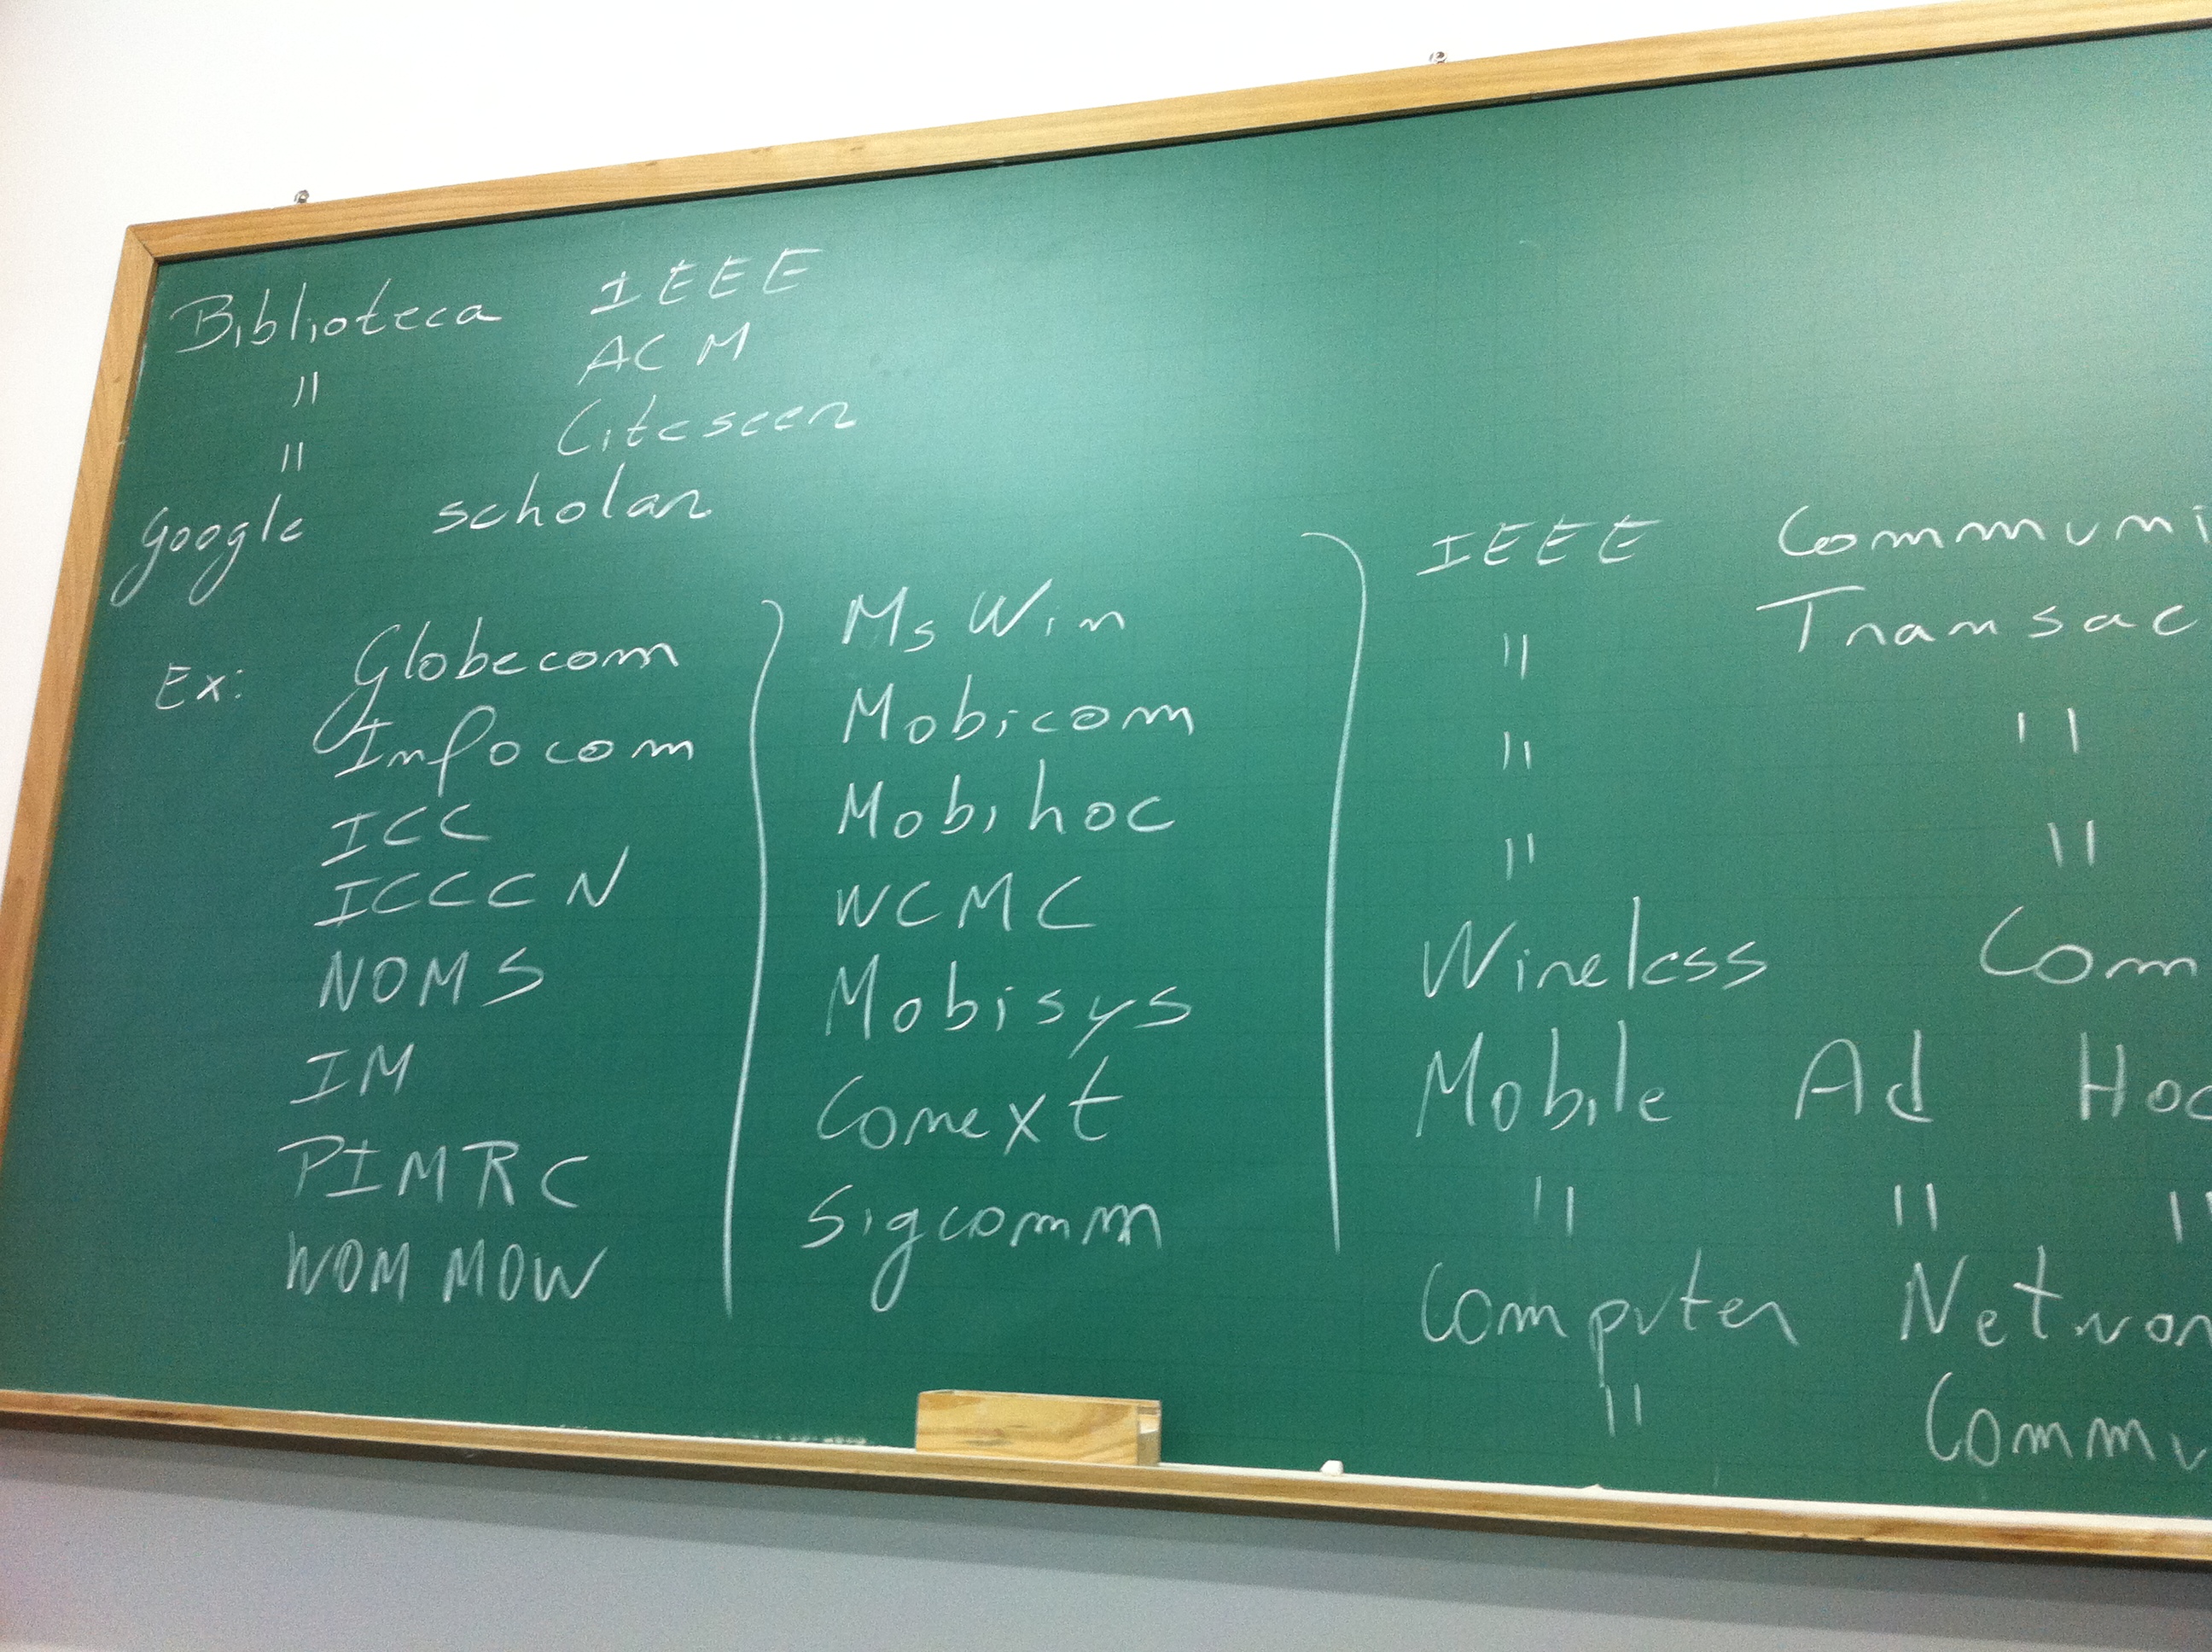 Biblioteca IEEE
" ACM
" Citeseer
Google scholar
Ex: Globecom
Infocom
ICC
ICCCN
NOMS
IM
PIMRC
WOMMOW
MsWin
Mobicom
Mobihoc
WCMC
Mobisys
Conext
Sigcomm
IEEE Communi
" Transac
" "
" "
Wireless Com
Mobile Ad Hoc
" " "
Computer Networ
" Commu